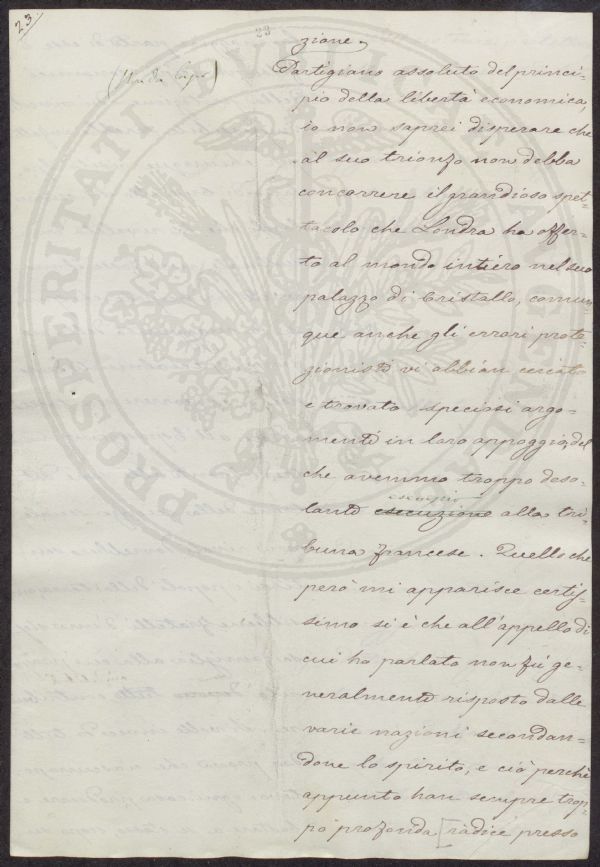 23.
23
zione.
Partigiano assoluto del princi-
pio della libertà economica,
io non saprei disperare che
al suo trionfo non debba
concorrere il grandioso spet-
tacolo che Londra ha offer-
to al mondo intiero nel suo
palazzo di Cristallo, comun-
que anche gli errori prote-
zionisti vi abbian cercato
e trovato speciosi argo-
menti in loro appoggio, del
che avemmo troppo deso-
esempio
lante esecuzione alla tri-
buna francese. Quello che
però mi apparisce certis-
simo si è che all'appello di
cui ho parlato non fù ge-
neralmente risposto dalle
varie nazioni secondan-
done lo spirito, e ciò perchè
appunto han sempre trop-
pò profonda [radice presso
PROSPERITATI PVBLICAE AVGENDAE